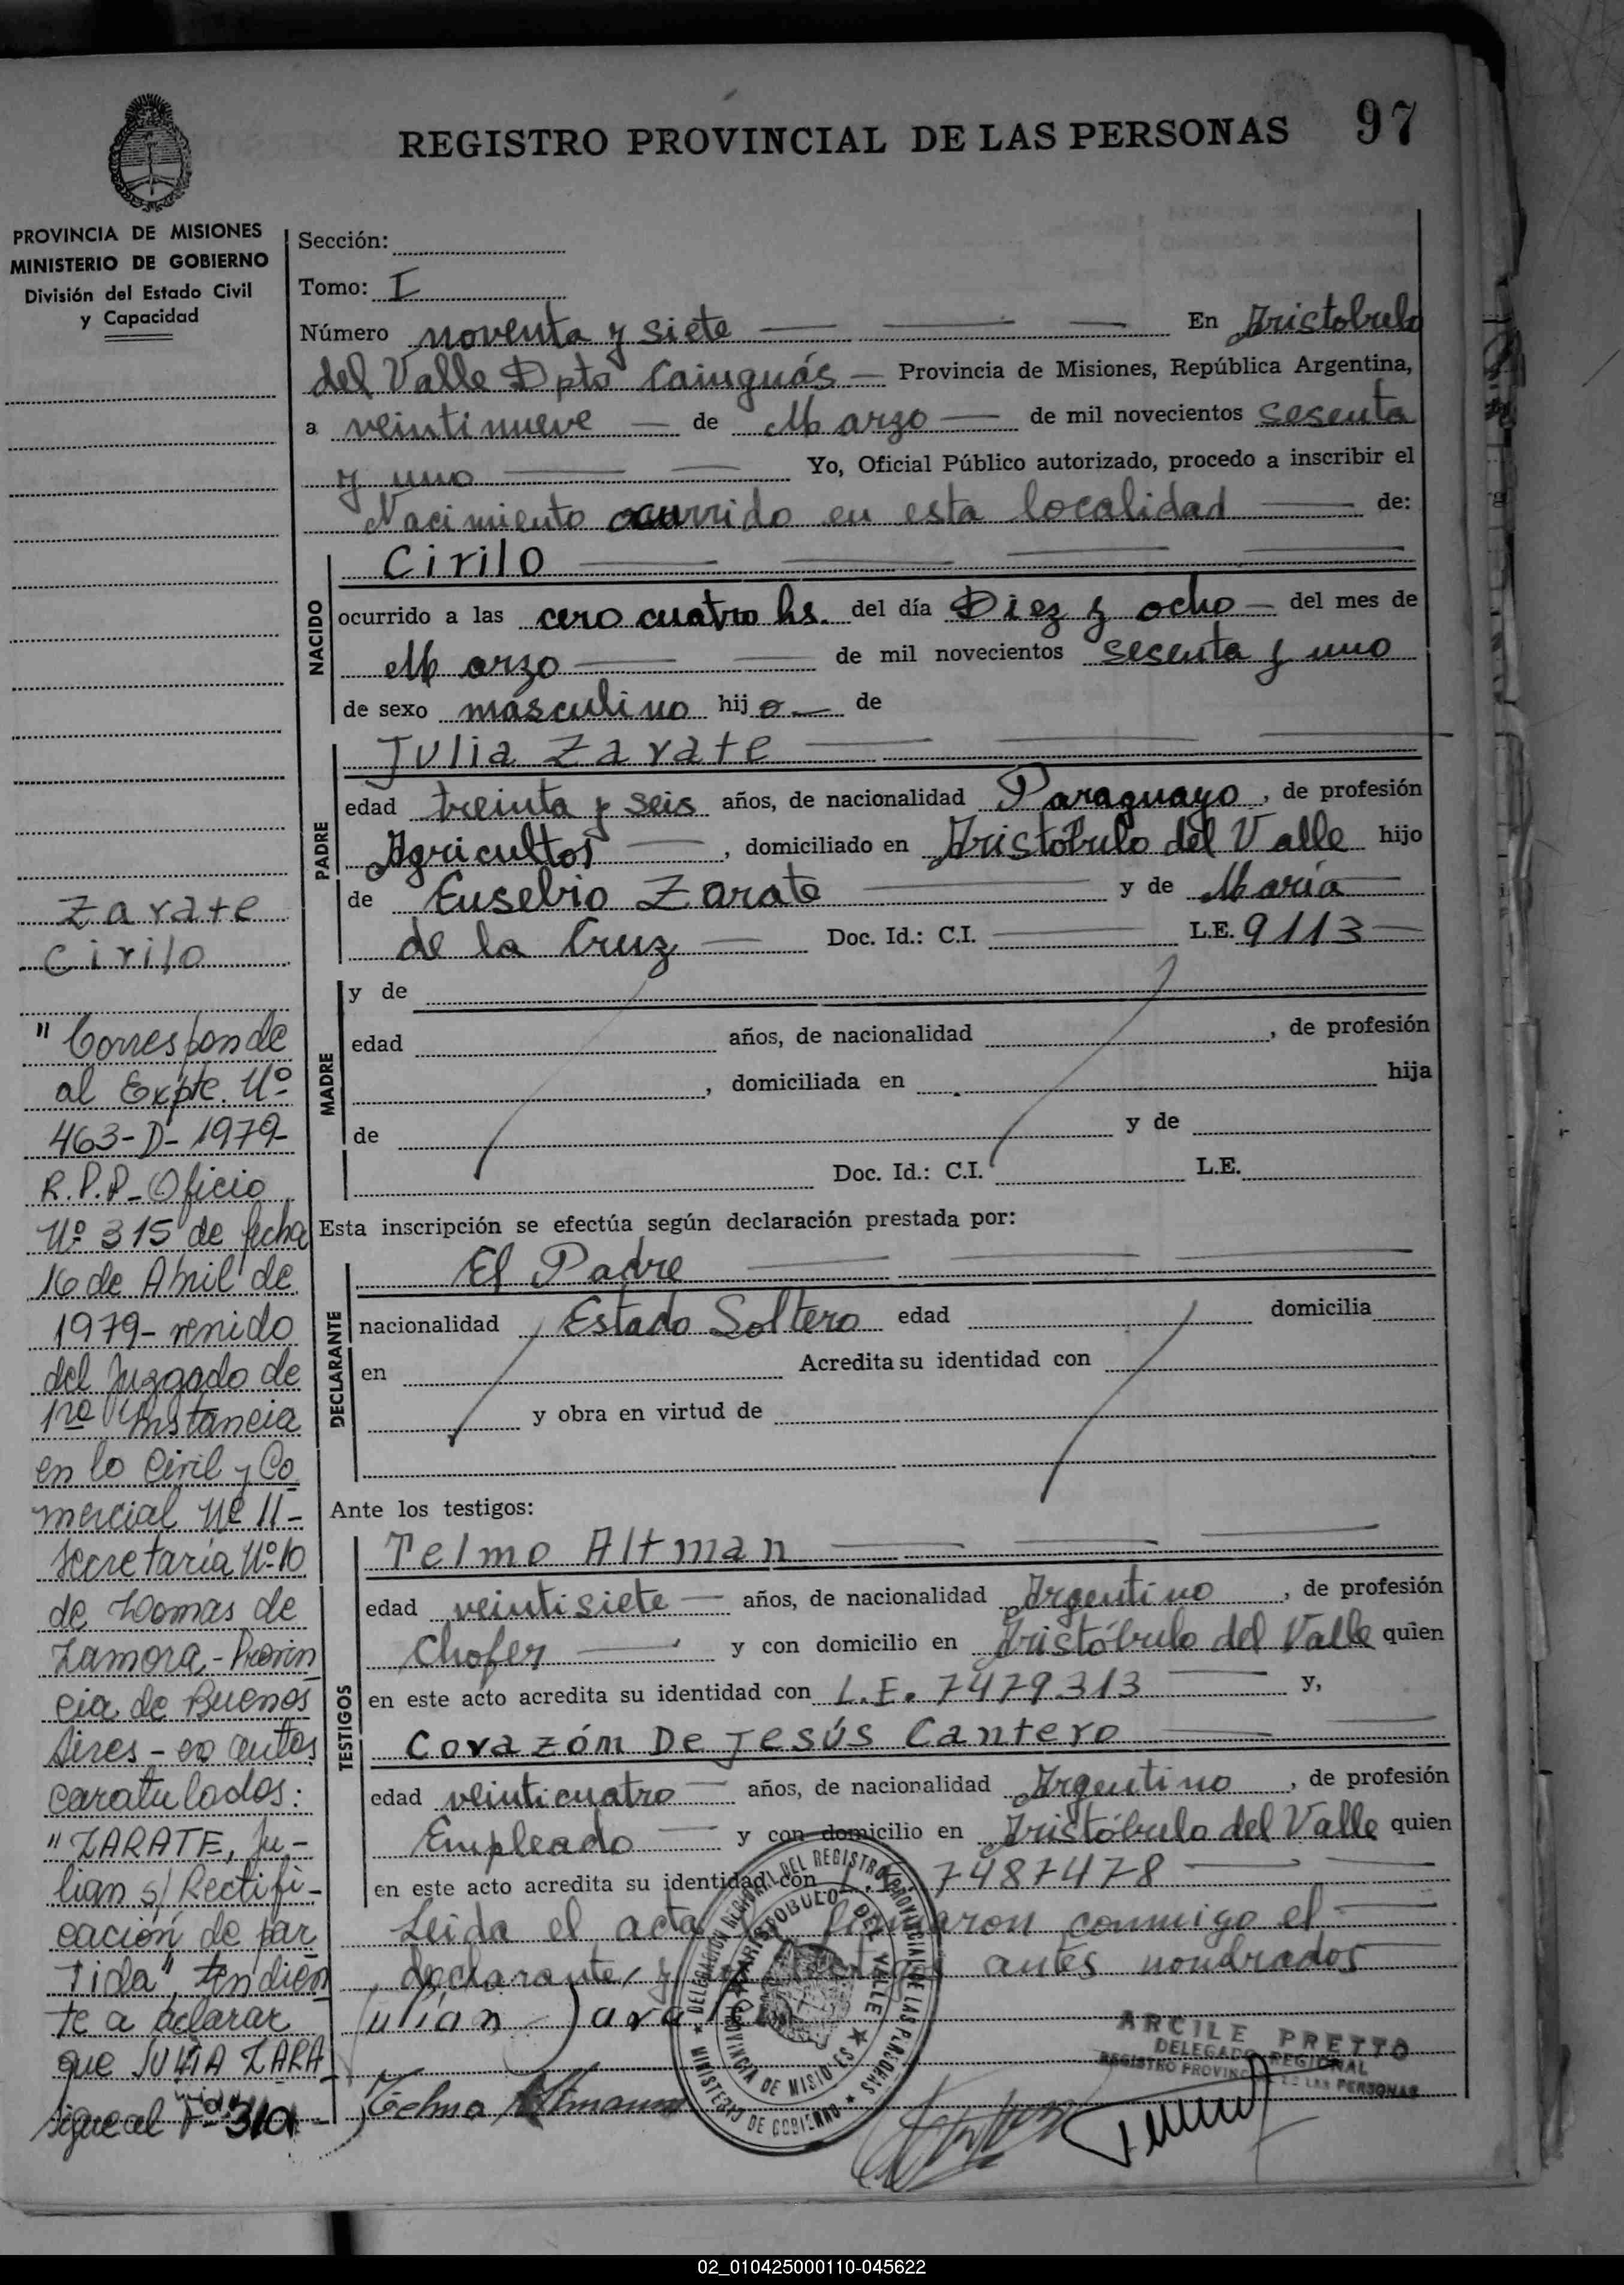 REGISTRO PROVINCIAL DE LAS PERSONAS 97
PROVINCIA DE MISIONES
MINISTERIO DE GOBIERNO
División del Estado Civil
y Capacidad
Sección:
Tomo: I
Número noventa y siete En Aristobulo
del Valle Dpto Cainguás Provincia de Misiones, República Argentina,
a veintinueve de Marzo de mil novecientos sesenta
y uno Yo, Oficial Público autorizado, procedo a inscribir el
Nacimiento ocurrido en esta localidad de:
NACIDO
Cirilo
ocurrido a las cero cuatro hs. del día Diez y ocho del mes de
Marzo de mil novecientos sesenta y uno
de sexo masculino hijo de
PADRE
Julia Zarate
edad treinta y seis años, de nacionalidad Paraguayo, de profesión
Agricultor, domiciliado en Aristóbulo del Valle hijo
de Eusebio Zarate y de María
de la Cruz Doc. Id.: C.I. L.E. 9113
MADRE
y de
edad años, de nacionalidad , de profesión
, domiciliada en hija
de y de
Doc. Id.: C.I. L.E.
Esta inscripción se efectúa según declaración prestada por:
DECLARANTE
El Padre
nacionalidad Estado Soltero edad domicilia
en Acredita su identidad con
y obra en virtud de
Ante los testigos:
TESTIGOS
Telmo Altman
edad veintisiete años, de nacionalidad Argentino, de profesión
Chofer y con domicilio en Aristóbulo del Valle quien
en este acto acredita su identidad con L.E. 7479313 y,
Corazón De Jesús Cantero
edad veinticuatro años, de nacionalidad Argentino, de profesión
Empleado y con domicilio en Aristóbulo del Valle quien
en este acto acredita su identidad con 7487478
Leida el acta firmaron conmigo el
declarante, y antes nombrados
Julián Zarate
Telmo Altmann
DELEGACION REGIONAL DEL REGISTRO PROVINCIAL DE LAS PERSONAS
MINISTERIO DE GOBIERNO
ARISTOBULO DEL VALLE
PROVINCIA DE MISIONES
ARCILE PRETTO
DELEGADO REGIONAL
REGISTRO PROVINCIAL DE LAS PERSONAS
Zarate
Cirilo
"Corresponde
al Expte. Nº
463-D-1979-
R.P.P. Oficio
Nº 315 de fecha
16 de Abril de
1979- venido
del Juzgado de
1ra Instancia
en lo Civil y Co
mercial Nº 11-
Secretaría Nº 10
de Lomas de
Zamora - Provin
cia de Buenos
Aires - en autos
caratulados:
"ZARATE, Ju-
lian s/ Rectifi-
cación de par
tida", tendien
te a aclarar
que JULIA ZARA
sigue al Fº 310
02_010425000110-045622